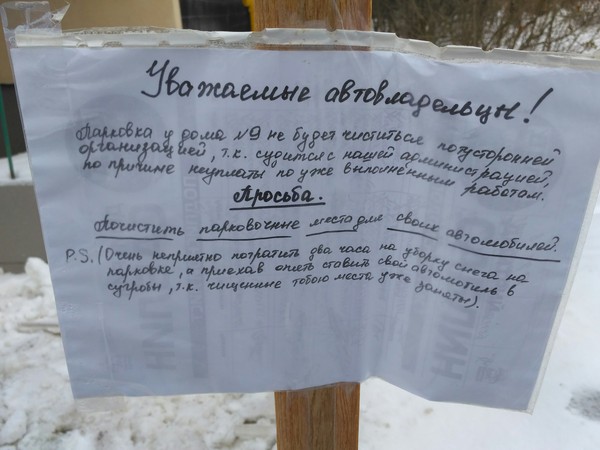 Уважаемые автовладельцы!
Парковка у дома №9 не будет чиститься потусторонней
организацией, т.к. судится с нашей администрацией,
по причине неуплаты по уже выполненным работам.
Просьба.
Почистить парковочные места для своих автомобилей.
P.S. (Очень неприятно потратить два часа на уборку снега на
парковке, а приехав опять ставить свой автомобиль в
сугробы, т.к. чищенные тобою места уже заняты).